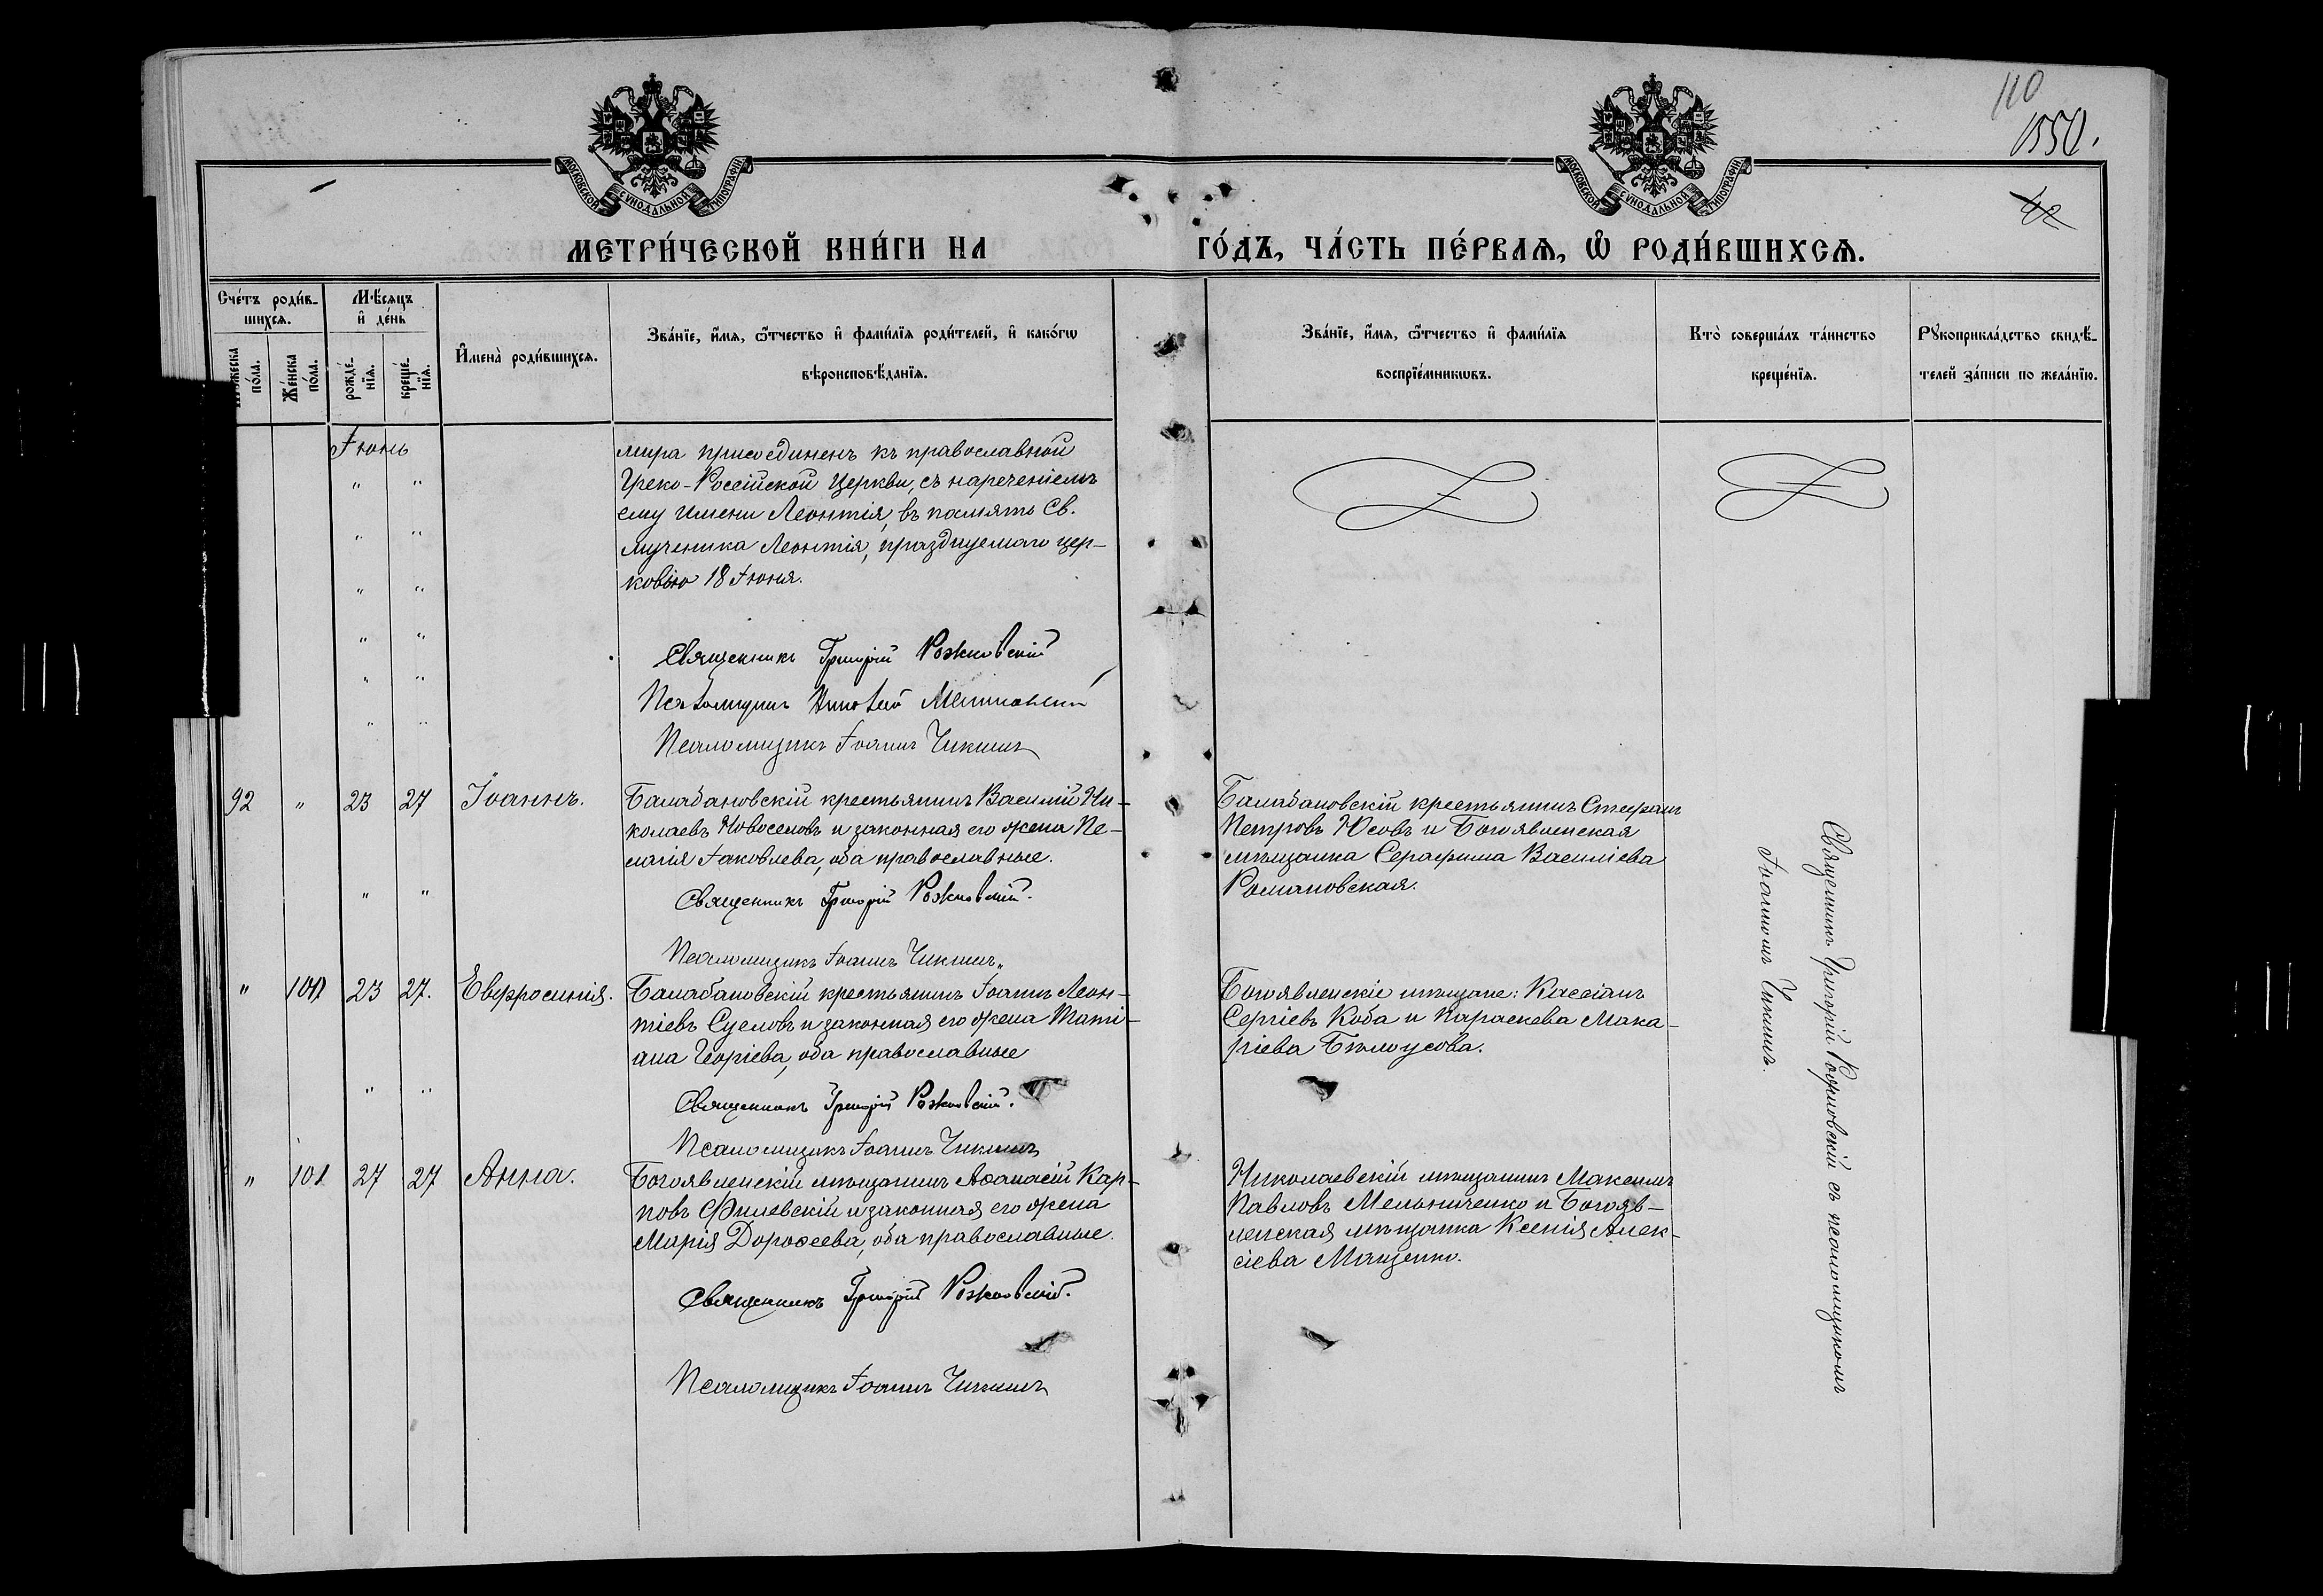 110
1550.
42
МОСКОВСКОЙ СУНОДАЛЬНОЙ ТИПОГРАФІИ
МОСКОВСКОЙ СУНОДАЛЬНОЙ ТИПОГРАФІИ
МЕТРИ́ЧЕСКОЙ КНИ́ГИ НА ГО́ДЪ, ЧА́СТЬ ПЕ́РВАѦ, Ѡ҆ РОДИ́ВШИХСѦ.
Сче́тъ роди́в-
шихсѧ.
Мѣ́сѧцъ
и҆ де́нь
Му́жеска
по́ла.
Же́нска
по́ла.
рожде́-
нїѧ.
креще́-
нїѧ.
И҆мена̀ роди́вшихсѧ.
Зва́нїе, и҆́мѧ, ѻ҆́тчество и҆ фами́лїѧ роди́телей, и҆ како́гѡ
вѣроисповѣ́данїѧ.
Зва́нїе, и҆́мѧ, ѻ҆́тчество и҆ фами́лїѧ
воспрїе́мникѡвъ.
Кто̀ соверша́лъ та́инство
креще́нїѧ.
Рꙋкоприкла́дство свидѣ́-
телей за́писи по жела́нїю.
Іюнь
мира присоединенъ къ православной
Греко-Россійской Церкви, съ нареченіемъ
ему имени Леонтія, въ память Св.
мученика Леонтія, празднуемаго цер-
ковію 18 Іюня.
Священникъ Григорій Рожновскій
Псаломщикъ
Псаломщикъ Іоаннъ Чикминъ
92 " 23 27 Іоаннъ.
Балабановскій крестьянинъ Василій Ни-
колаевъ Новоселовъ и законная его жена Пе-
лагія Іаковлева, оба православные.
Священникъ Григорій Рожновскій.
Псаломщикъ Іоаннъ Чикминъ
Балабановскій крестьянинъ Стефанъ
Петровъ Юсовъ и Богоявленская
мѣщанка Серафима Василіева
Романовская.
" 100 23 27. Евфросинія.
Балабановскій крестьянинъ Іоаннъ Леон-
тіевъ Суслов и законная его жена Тати-
ана Георгіева, оба православные
Священникъ Григорій Рожновскій.
Псаломщикъ Іоаннъ Чикминъ
Богоявленскіе мѣщане: Кассіанъ
Сергіевъ Коба и Параскева Мака-
ріева Бѣлоусова.
" 101 27 27 Анна.
Богоявленскій мѣщанинъ Аѳанасій Кар-
повъ Филевскій и законная его жена
Марія Дороѳеева, оба православные.
Священникъ Григорій Рожновскій.
Псаломщикъ Іоаннъ Чикминъ
Николаевскій мѣщанинъ Максимъ
Павловъ Мельниченко и Богояв-
ленская мѣщанка Ксенія Алек-
сіева Мащенко.
Священникъ Григорій Рожновскій съ псаломщикомъ
Іоанномъ Чикминъ.